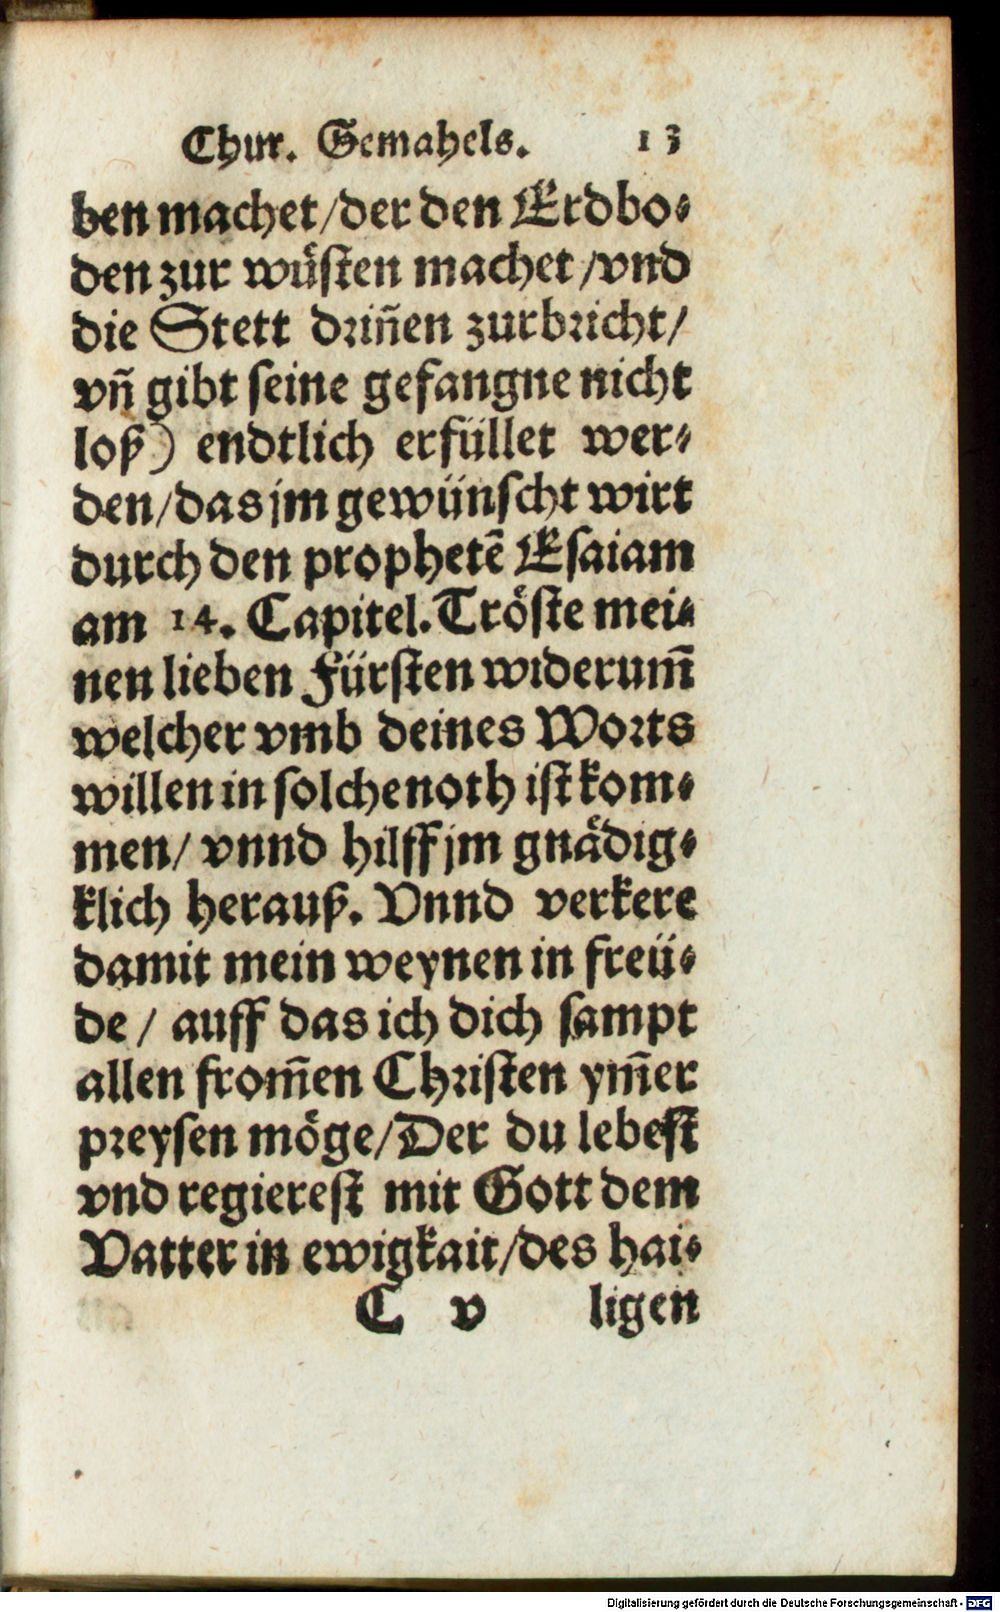 Chur. Gemahels. 13
ben machet/der den Erdbo⸗
den zur wüsten machet/vnd
die Stett driñen zurbricht/
vñ gibt seine gefangne nicht
loß) endtlich erfüllet wer⸗
den/das jm gewünscht wirt
durch den prophetē Esaiam
am 14. Capitel. Tröste mei⸗
nen lieben Fürsten widerum̄
welcher vmb deines Worts
willen in solche noth ist kom⸗
men/ vnnd hilff jm gnädig⸗
klich herauß. Vnnd verkere
damit mein weynen in freü⸗
de/ auff das ich dich sampt
allen from̄en Christen ym̄er
preysen möge/Der du lebest
vnd regierest mit Gott dem
Vatter in ewigkait/des hai⸗
C v ligen
Digitalisierung gefördert durch die Deutsche Forschungsgemeinschaft - DFG